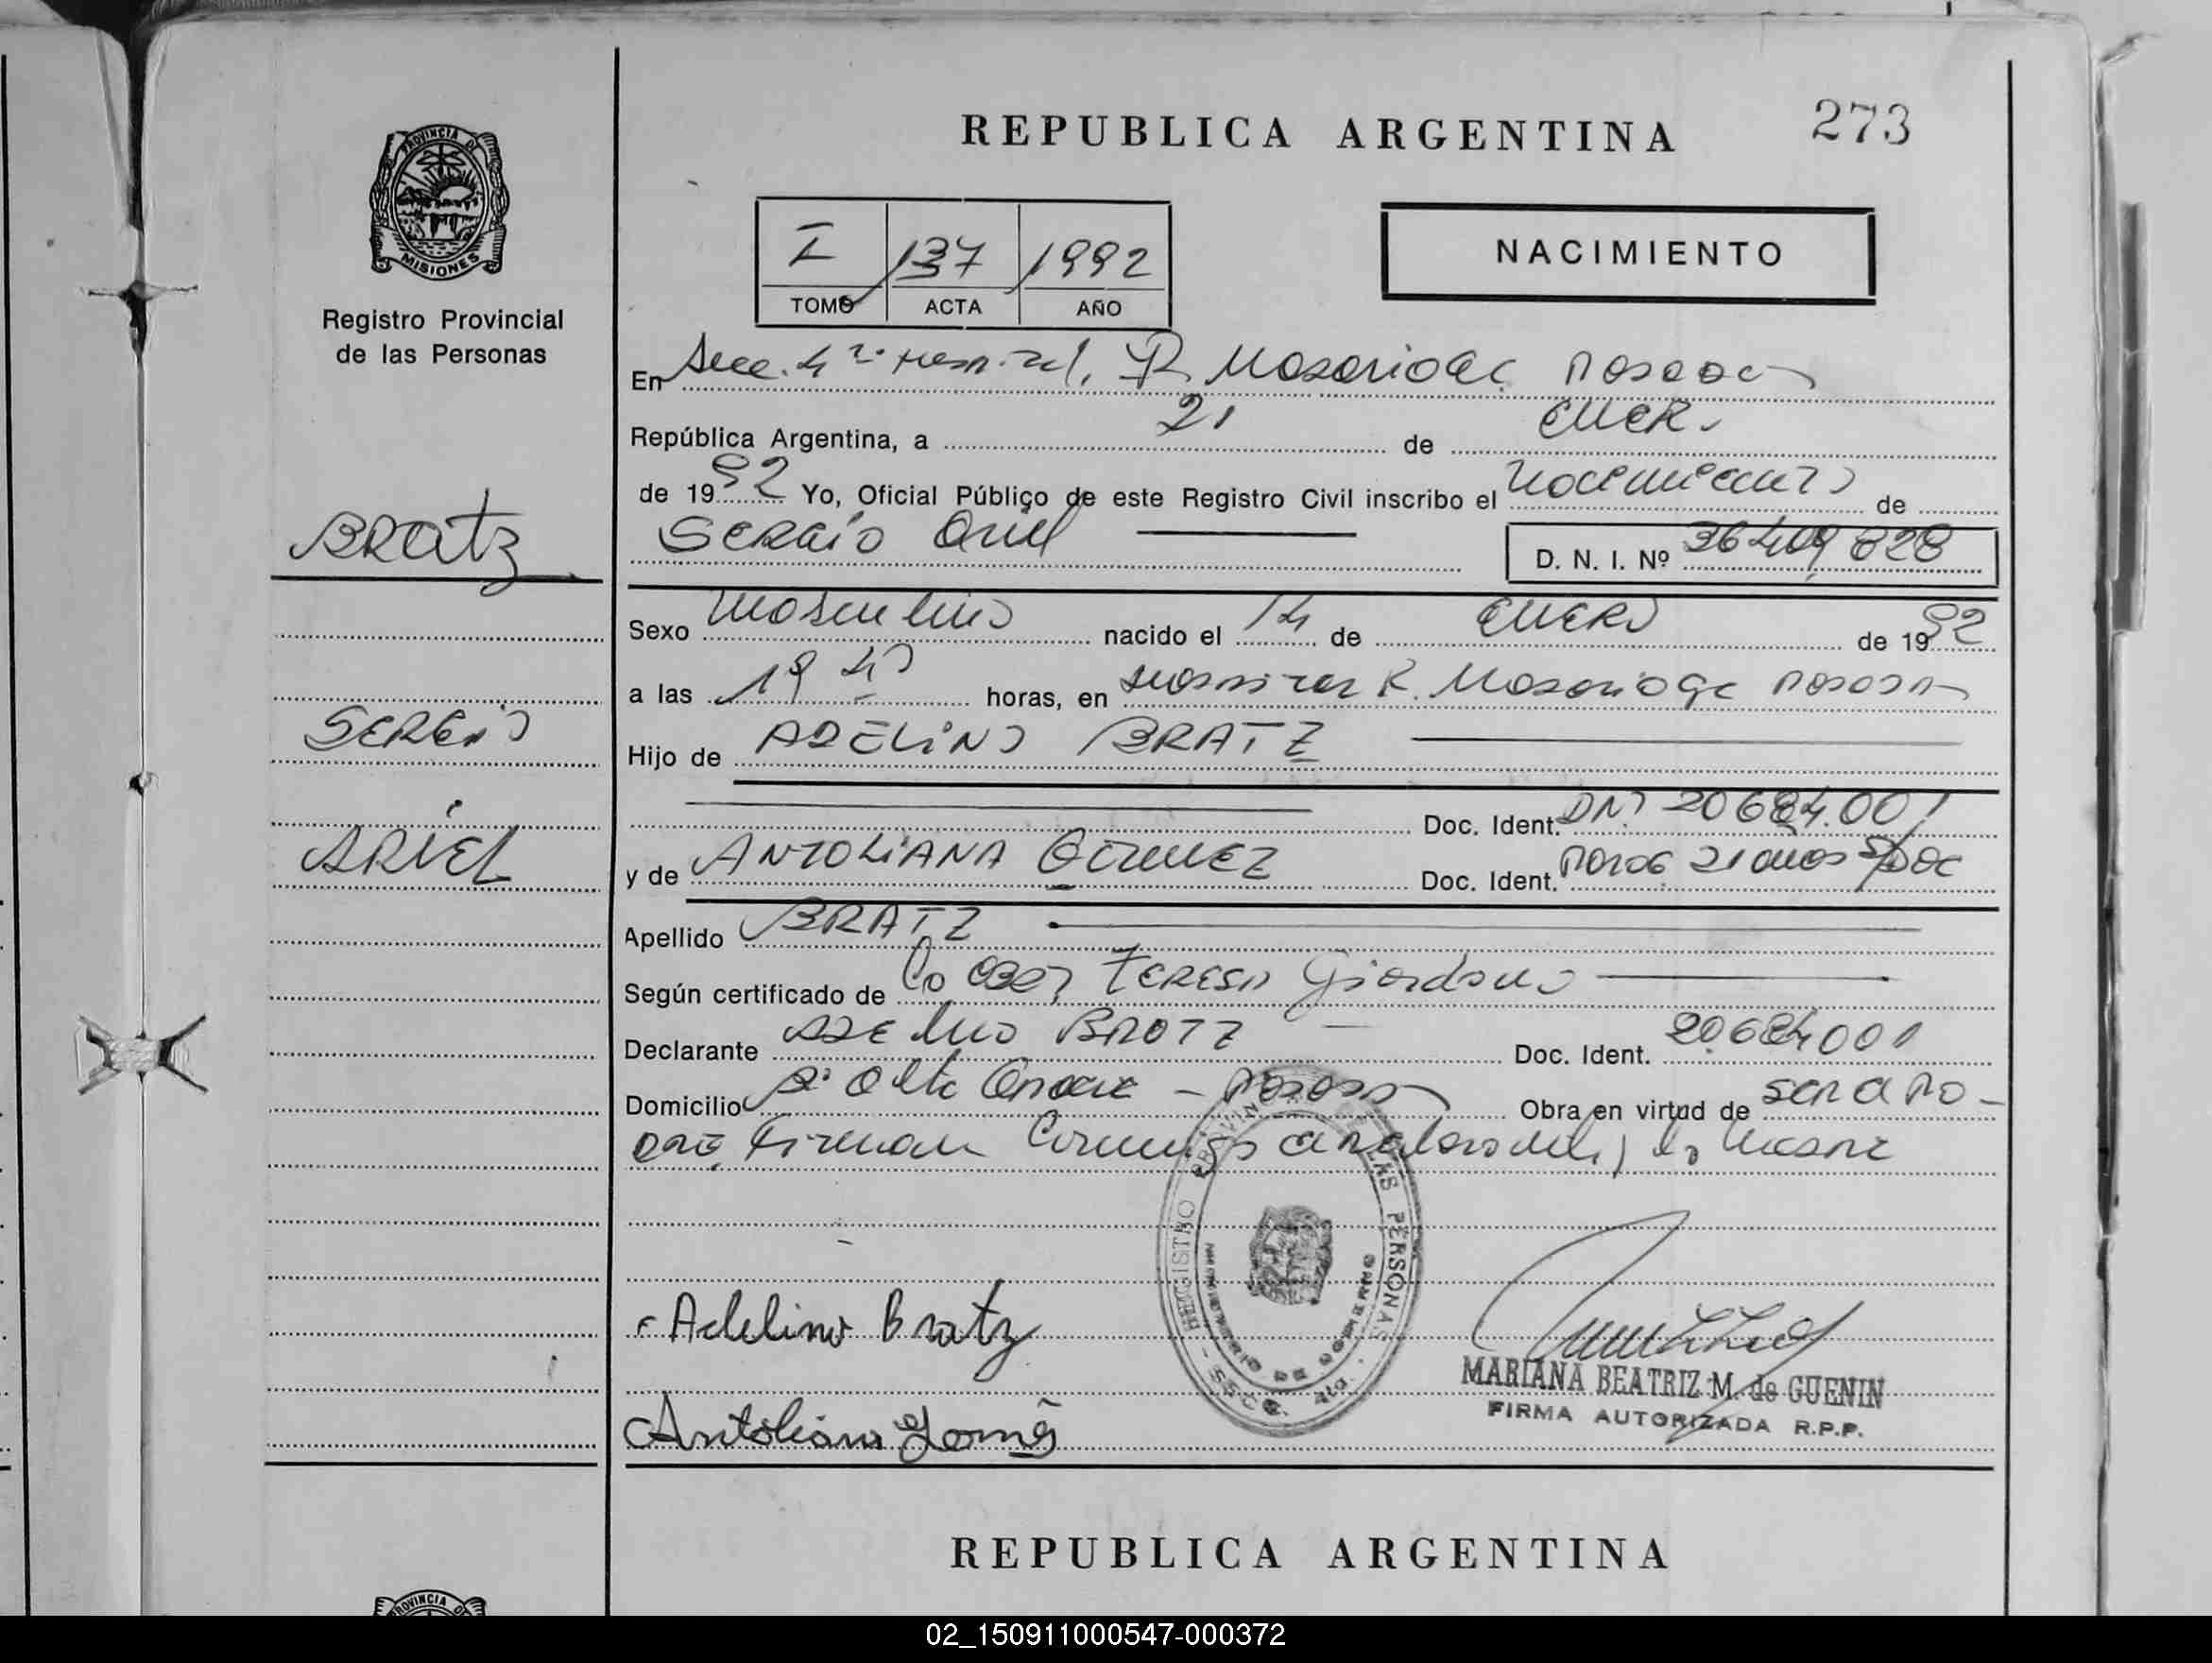 273
REPUBLICA ARGENTINA
PROVINCIA DE
MISIONES
Registro Provincial
de las Personas
I 137 1992
TOMO ACTA AÑO
NACIMIENTO
En Secc. 4ª R. Madariaga Posadas
República Argentina, a 21 de Enero
de 1992 Yo, Oficial Público de este Registro Civil inscribo el Nacimiento de
Bratz
Sergio Ariel
D. N. I. Nº 36409828
Sexo Masculino nacido el 14 de Enero de 1992
a las 19 40 horas, en R. Madariaga Posadas
Sergio
Hijo de ADELINO BRATZ
Doc. Ident. DNI 20684.001
Ariel
y de ANTOLIANA GOMEZ Doc. Ident. 21 años S/Doc
Apellido BRATZ
Según certificado de la Obst. Teresa Giordano
Declarante Adelino Bratz Doc. Ident. 20684001
Domicilio Posadas Obra en virtud de ser el Pa-
dre, Firman Conmigo el declarante y la Madre
REGISTRO PROVINCIAL DE LAS PERSONAS
MINISTERIO DE GOBIERNO
Adelino Bratz
MARIANA BEATRIZ M. de GUENIN
FIRMA AUTORIZADA R.P.P.
Antoliana Gomẽs
REPUBLICA ARGENTINA
PROVINCIA DE
02_150911000547-000372